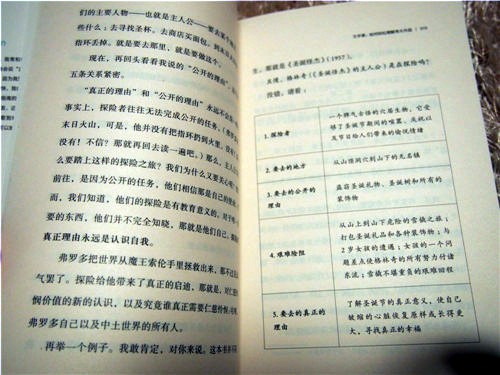 们的主要人物——也就是主人公——要去某个地
些什么：去寻找圣杯。去商店买面包。到末日火山
指环丢掉。就是要去那里，就是要做这个。
现在，再回头看看我说的“公开的理由”
五条关系紧密。
“真正的理由”和“公开的理由”永远不会
事实上，探险者往往无法完成公开的任务。（弗罗
末日火山，可是，他并没有把指环扔到火里。
没有！不信？那就再回去读一遍吧。）那么，主人
么要踏上这样的探险之旅？我们为什么又要关心呢？
前往，是因为公开的任务，他们相信那是自己的使
而，我们知道，他们的探险是有教育意义的。对于唯一
要的东西，他们并不完全知晓，那就是他们自己。
真正理由永远是认识自我。
弗罗多把世界从魔王索伦手里拯救出来，那不过
气罢了。探险给他带来了真正的启迪，那就是，对仁慈
悯价值的新的认识，以及究竟谁真正需要仁慈怜悯
弗罗多自己以及中土世界的所有人。
再举一个例子。我敢肯定，对你来说，这本书并不
生。那就是《圣诞怪杰》（1957）。
天理，格林奇（《圣诞怪杰》的主人公）是在探险吗？
没错。请看：
1. 探险者
一个脾气古怪的穴居生物，它受
够了圣诞节期间的喧嚣，及以
及节日给人们带来的愉快情绪
2. 要去的地方
从山顶洞穴到山下的无名镇
3. 要去的公开的
理由
盗窃圣诞礼物、圣诞树和所有的
装饰物
4. 艰难险阻
从山上到山下危险的雪橇之旅；
打包圣诞礼品和各种装饰物；与
2 岁女孩的遭遇；女孩的一个问
题差点使格林奇的所有努力付诸
东流；雪橇不堪重负的艰难回程
5. 要去的真正的
理由
了解圣诞节的真正意义，使自己
皱缩的心脏恢复原样或长得更
大，寻找真正的幸福